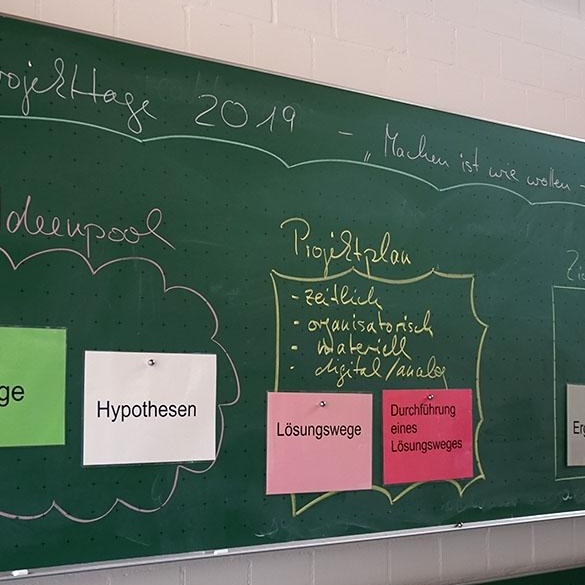 rojekttage 2019 - „Machen ist wie wollen
Ideenpool
ge
Hypothesen
Projektplan
- zeitlich
- organisatorisch
- materiell
- digital/analog
Lösungswege
Durchführung
eines
Lösungsweges
Zie
Erg